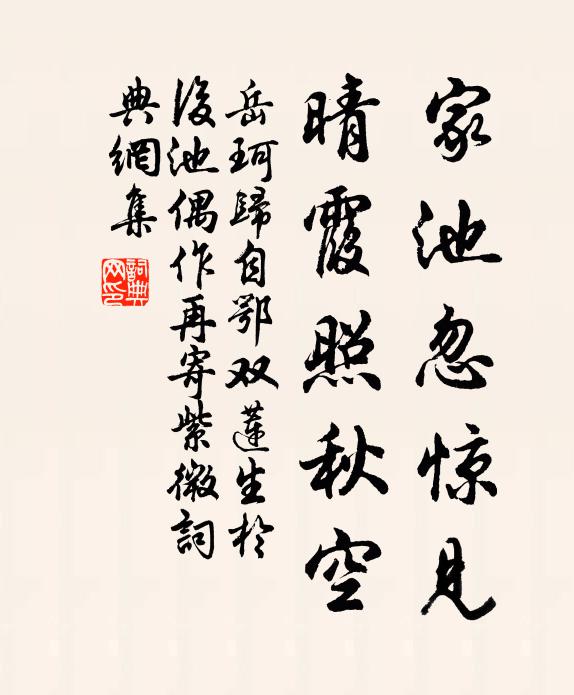 家池忽惊见
晴霞照秋空
岳珂歸自鄂双蓮生於
後池偶作再寄紫微詞
典網集
詞典
网印